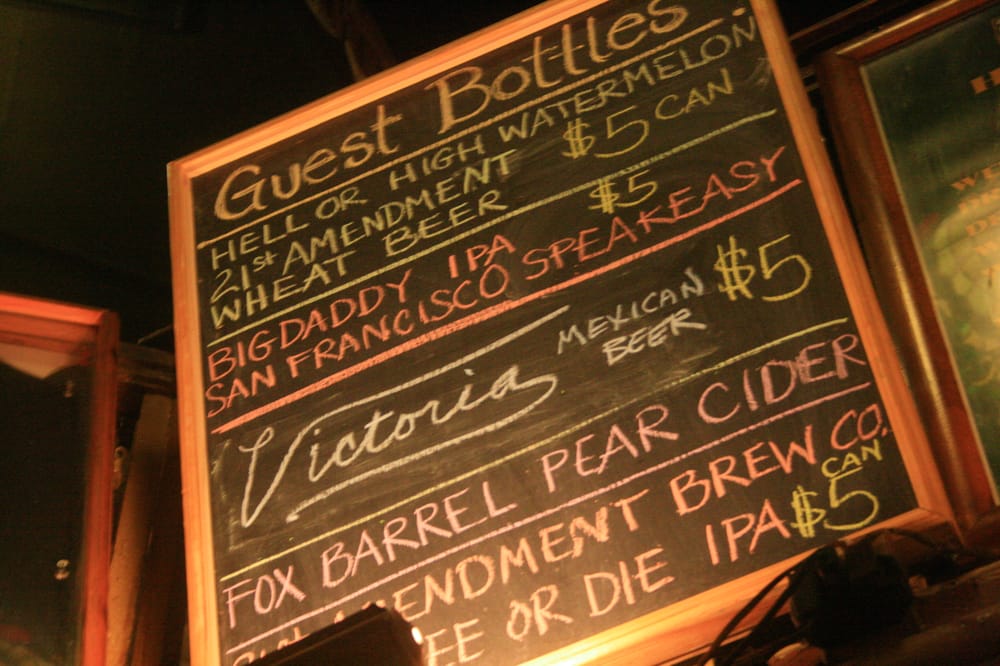 Guest Bottles.
HELL OR HIGH WATERMELON
21st AMENDMENT $5 CAN
WHEAT BEER
$5
BIGDADDY IPA
SAN FRANCISCO SPEAKEASY
Victoria
MEXICAN
BEER
$5
FOX BARREL PEAR CIDER
21st AMENDMENT BREW CO.
EE OR DIE IPA $5
CAN